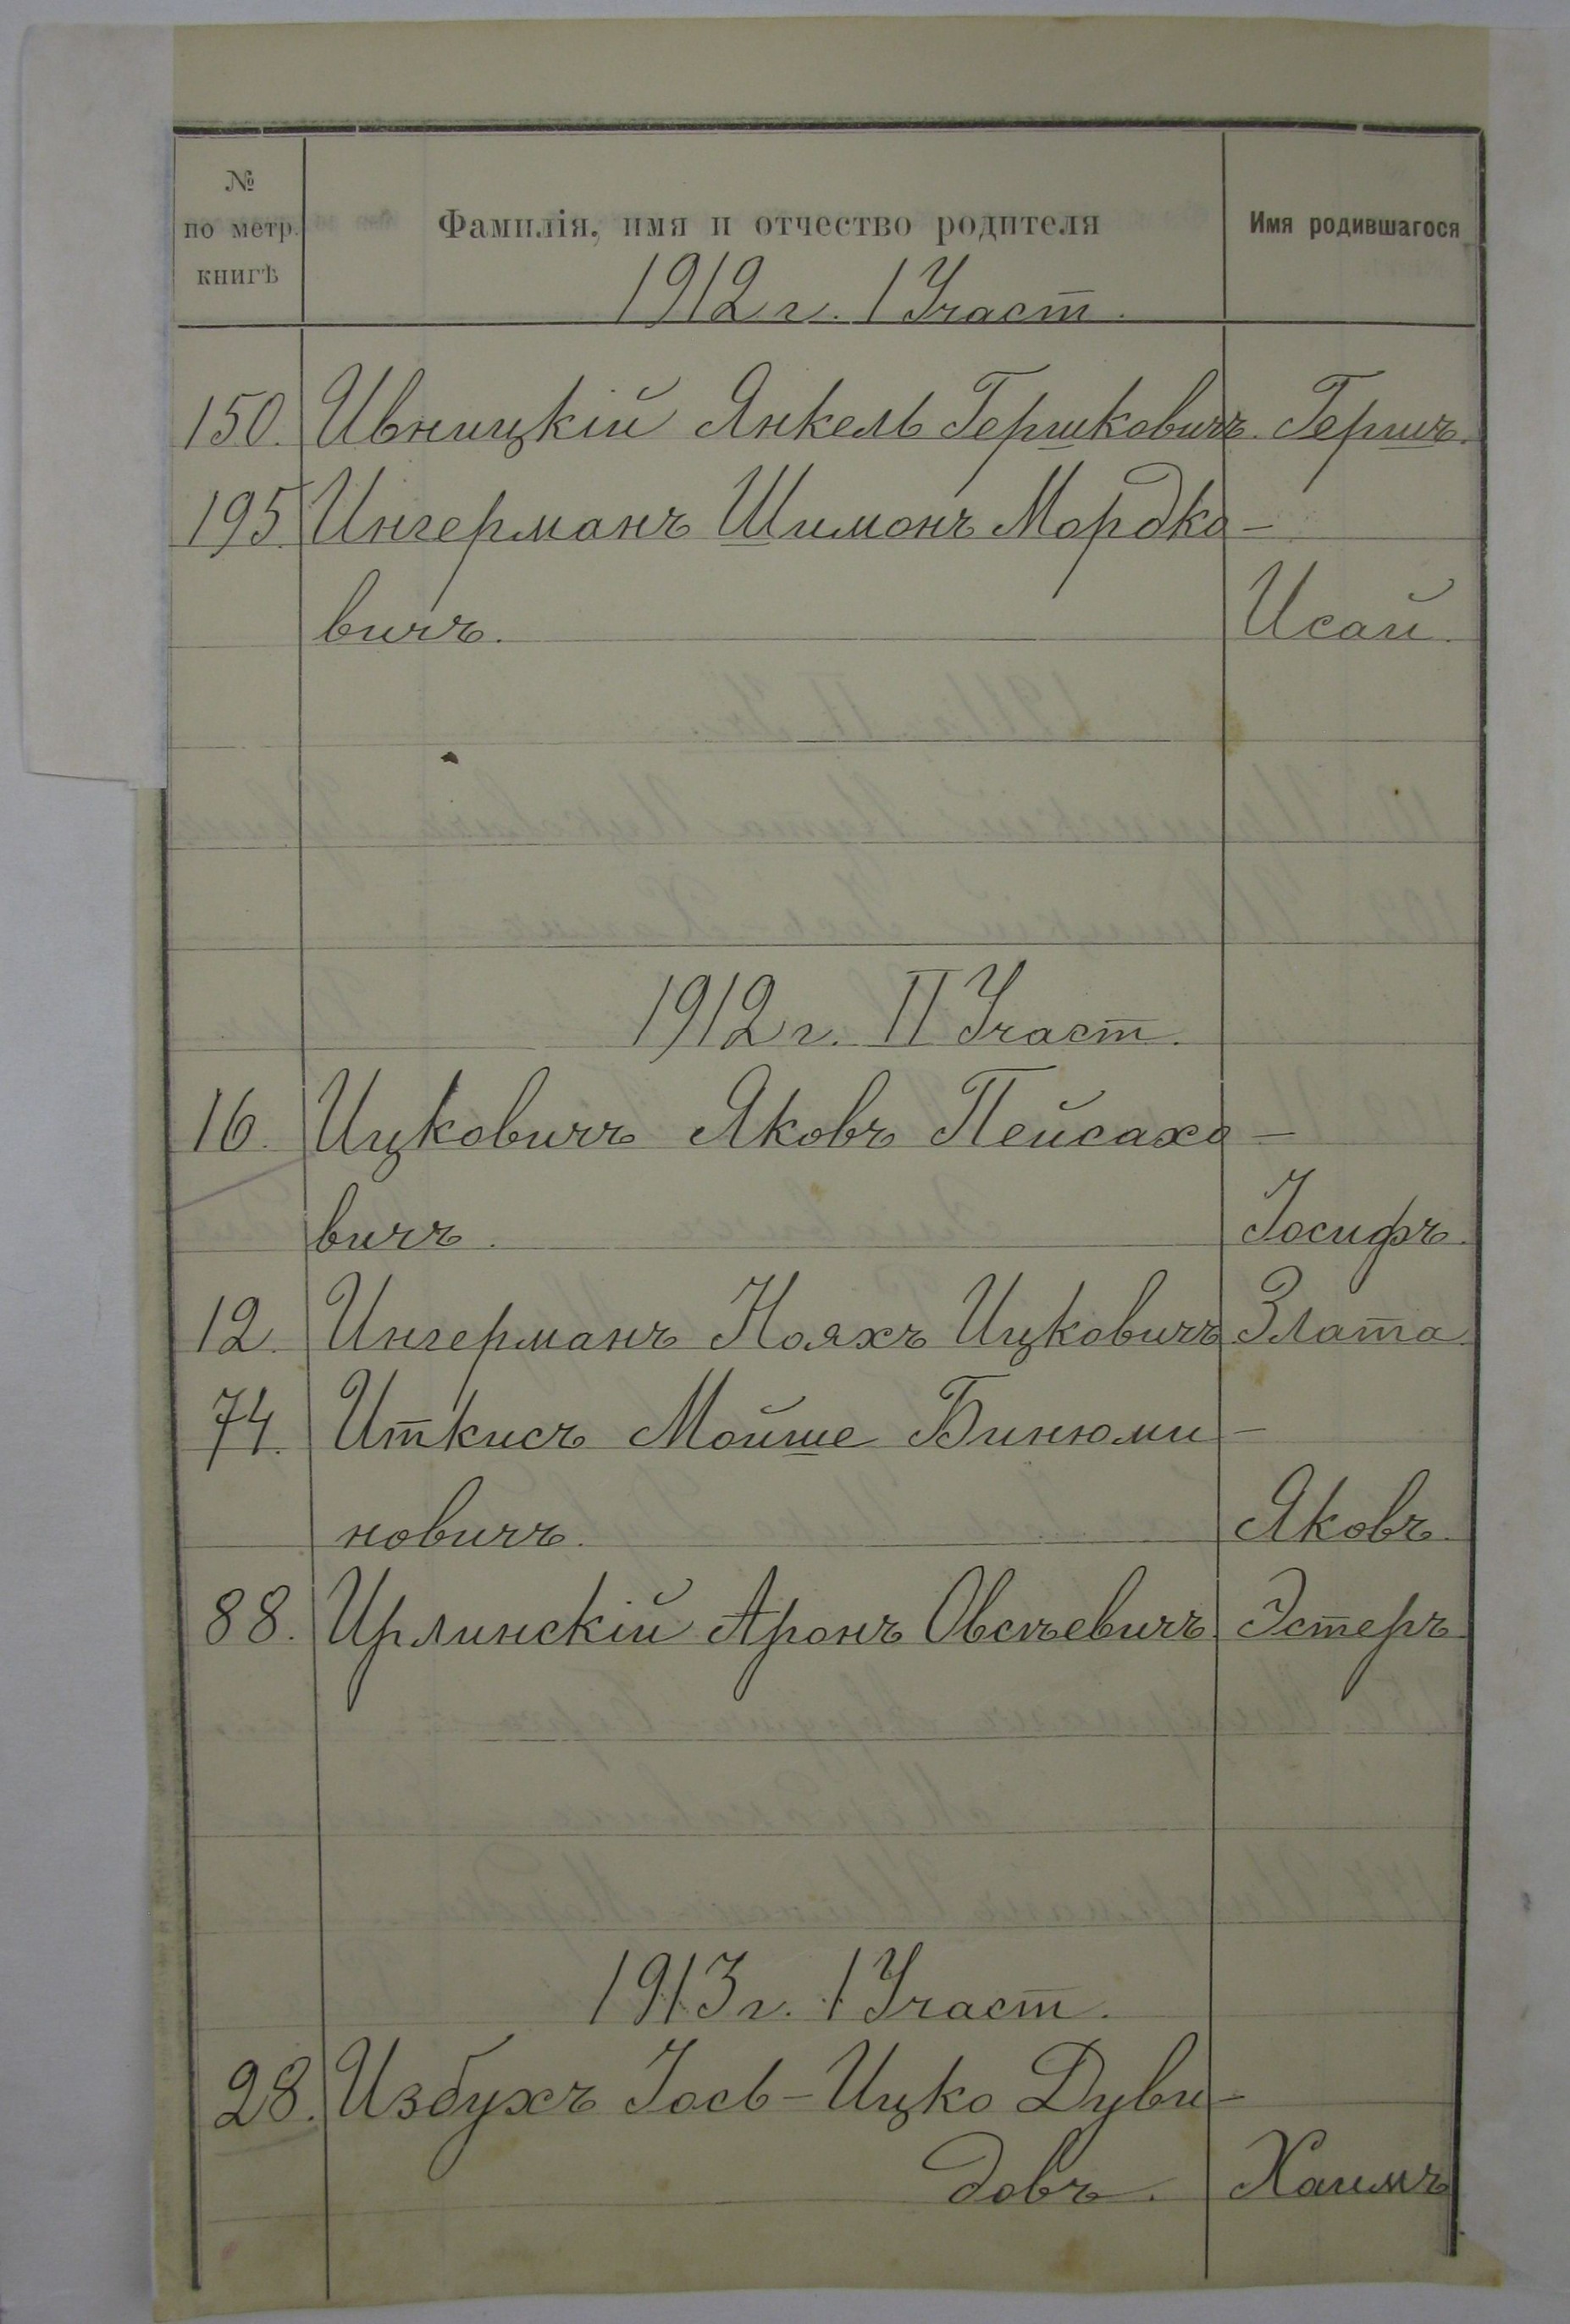 № по метр. книгѣ Фамилія, имя и отчество родителя Имя родившагося
1912 г. I Участ.
150. Ивницкій Янкель Гершковичъ. Гершъ.
195. Ингерманъ Шимонъ Мордко-
вичъ. Исай.
1912 г. II Участ.
16. Ицковичъ Яковъ Пейсахо-
вичъ. Іосифъ.
12. Ингерманъ Нояхъ Ицковичъ Злата
74. Иткисъ Мойше Бинюми-
новичъ. Яковъ.
88. Ирлинскій Аронъ Овсѣевичъ Эстеръ
1913 г. I Участ.
28. Избухъ Іось-Ицко Дуви-
довъ. Хаимъ